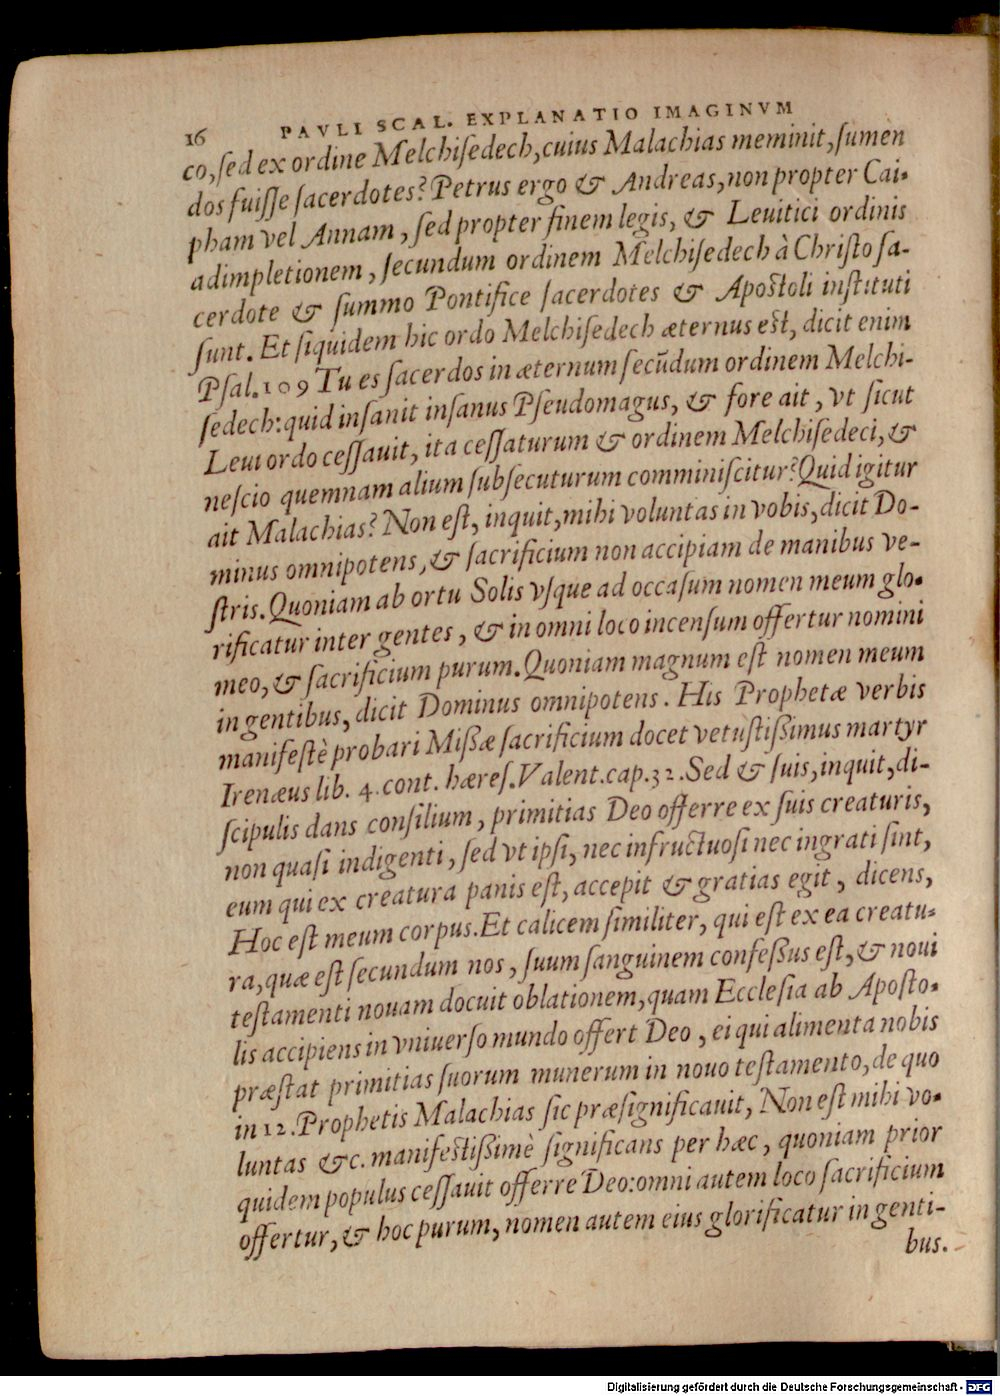 16 PAVLI SCAL. EXPLANATIO IMAGINVM
co, ſed ex ordine Melchiſedech, cuius Malachias meminit, ſumen
dos fuiſſe ſacerdotes? Petrus ergo & Andreas, non propter Cai-
pham vel Annam, ſed propter finem legis, & Leuitici ordinis
adimpletionem, ſecundum ordinem Melchiſedech à Chriſto ſa-
cerdote & ſummo Pontifice ſacerdotes & Apoſtoli inſtituti
ſunt. Et ſiquidem hic ordo Melchiſedech æternus eſt, dicit enim
Pſal. 109 Tu es ſacerdos in æternum ſecūdum ordinem Melchi-
ſedech: quid inſanit inſanus Pſeudomagus, & fore ait, vt ſicut
Leui ordo ceſſauit, ita ceſſaturum & ordinem Melchiſedeci, &
neſcio quemnam alium ſubſecuturum comminiſcitur? Quid igitur
ait Malachias? Non eſt, inquit, mihi voluntas in vobis, dicit Do-
minus omnipotens, & ſacrificium non accipiam de manibus ve-
ſtris. Quoniam ab ortu Solis vſque ad occaſum nomen meum glo-
rificatur inter gentes, & in omni loco incenſum offertur nomini
meo, & ſacrificium purum. Quoniam magnum eſt nomen meum
in gentibus, dicit Dominus omnipotens. His Prophetæ verbis
manifeſtè probari Miſſæ ſacrificium docet vetuſtiſſimus martyr
Irenæus lib. 4. cont. hæreſ. Valent. cap. 32. Sed & ſuis, inquit, di-
ſcipulis dans conſilium, primitias Deo offerre ex ſuis creaturis,
non quaſi indigenti, ſed vt ipſi, nec infructuoſi nec ingrati ſint,
eum qui ex creatura panis eſt, accepit & gratias egit, dicens,
Hoc eſt meum corpus. Et calicem ſimiliter, qui eſt ex ea creatu-
ra, quæ eſt ſecundum nos, ſuum ſanguinem confeſſus eſt, & noui
teſtamenti nouam docuit oblationem, quam Eccleſia ab Apoſto-
lis accipiens in vniuerſo mundo offert Deo, ei qui alimenta nobis
præſtat primitias ſuorum munerum in nouo teſtamento, de quo
in 12. Prophetis Malachias ſic præſignificauit, Non eſt mihi vo-
luntas &c. manifeſtiſſimè ſignificans per hæc, quoniam prior
quidem populus ceſſauit offerre Deo: omni autem loco ſacrificium
offertur, & hoc purum, nomen autem eius glorificatur in genti-
bus.
Digitalisierung gefördert durch die Deutsche Forschungsgemeinschaft - DFG